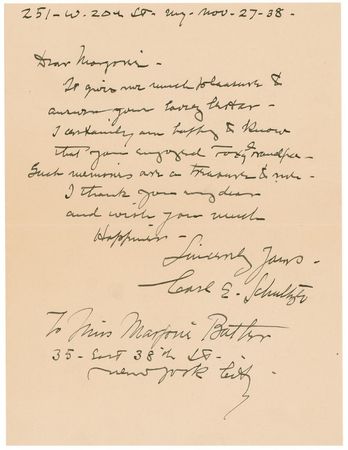 251-W. 20th St. ny. Nov-27-38-
Dear Marjorie-
It gives me much pleasure &
answer your lovely letter-
I certainly am happy & know
that you enjoyed Foxy Grandpa-
Such memories are a treasure & me-
I thank you my dear
and wish you much
Happiness-
Sincerely Yours-
Carl E. Schultze
To Miss Marjorie
35-East 38th St.-
New York City